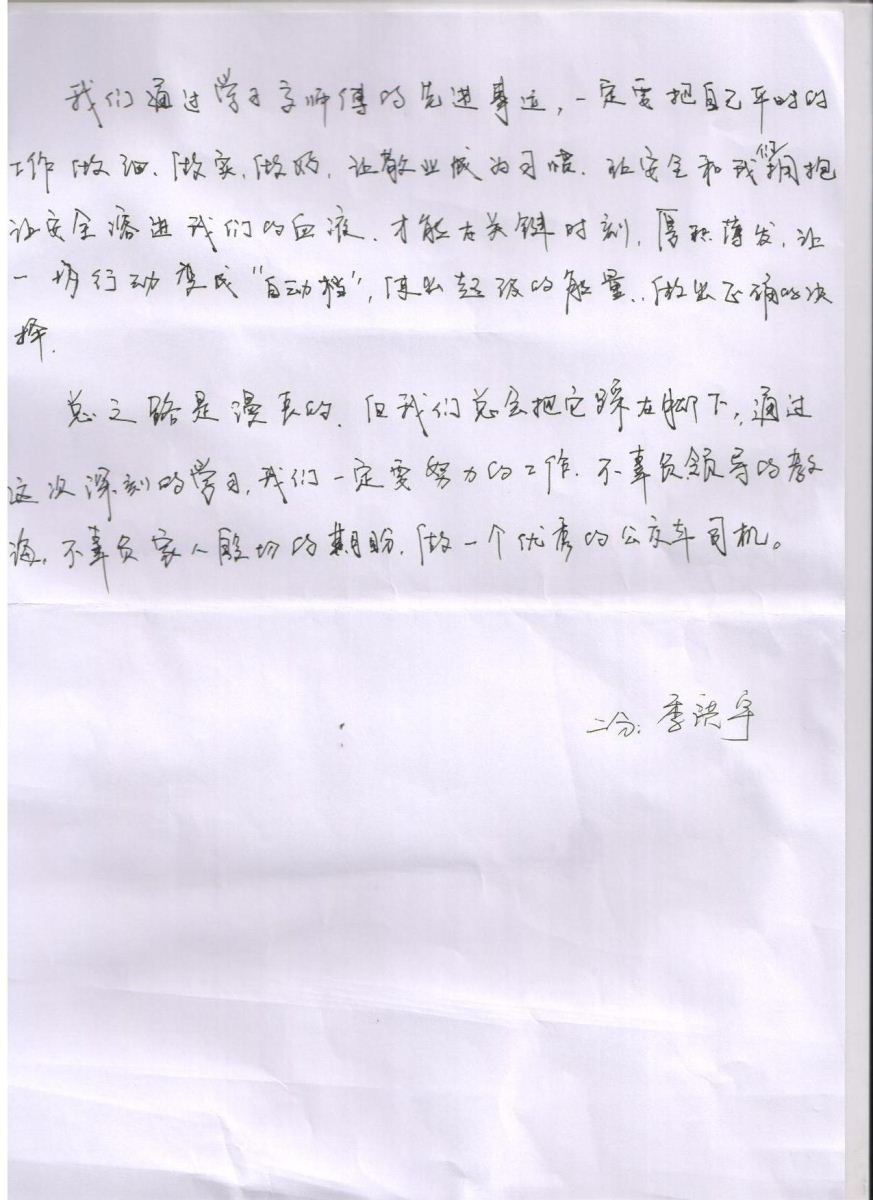 我们通过学习李师傅的先进事迹，一定要把自己平时的
工作做细、做实、做好，让敬业成为习惯，把安全和我们拥抱
让安全溶进我们的血液，才能在关键时刻，厚积薄发，让
一切行动变成“自动档”，使出超级的能量，做出正确的决
择.
总之路是漫长的，但我们总会把它踩在脚下，通过
这次深刻的学习，我们一定要努力的工作，不辜负领导的教
诲，不辜负家人殷切的期盼，做一个优秀的公交车司机。
二分: 季